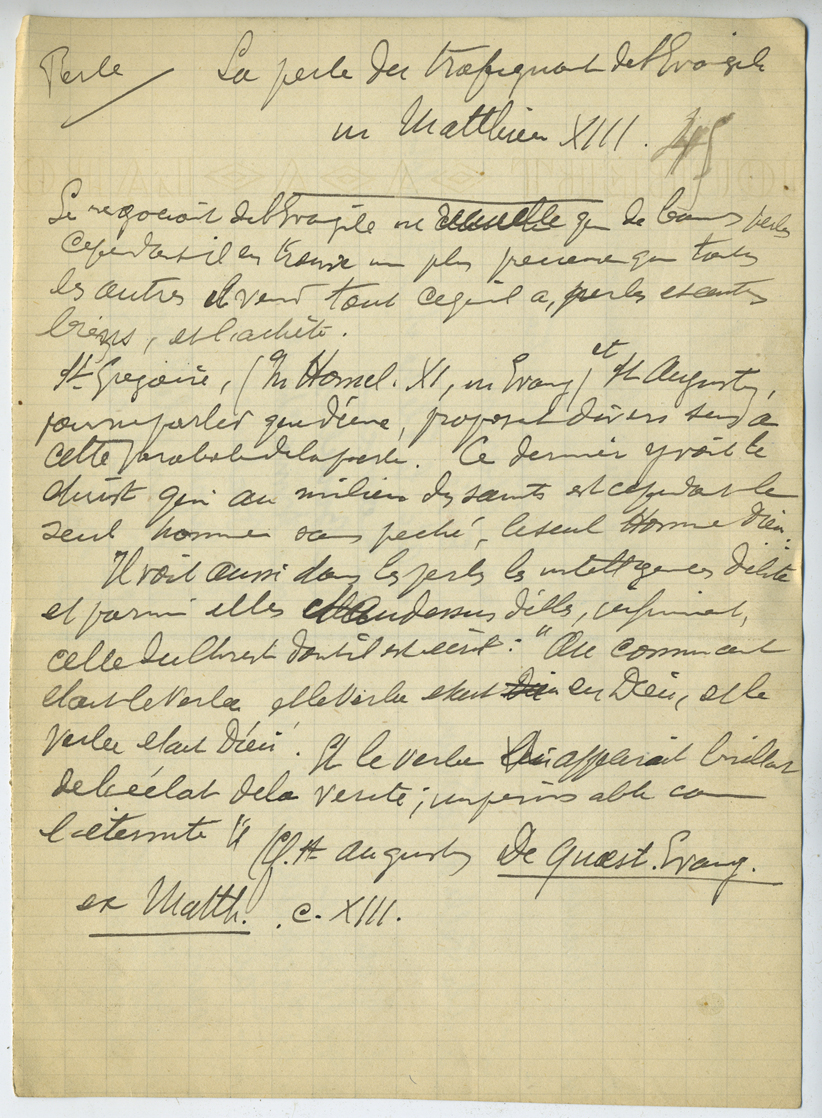 Perle La perle du trafiquant de l'Evangile
in Matthieu XIII. 45
Le negociant de l'Evangile ne que de bonnes perles
cependant il en trouve une plus precieuse que toutes
les autres il vend tout ce qu'il a, perles et autres
biens, et l'achète.
St Gregoire, (In Homel. XI, in Evang) et St Augustin,
pour ne parler que d'eux, proposent divers sens à
cette parabole de la perle. Ce dernier y voit le
christ qui au milieu des saints est cependant le
seul homme sans peché, le seul Homme Dieu.
Il voit aussi dans les perles les intelligences d'élite
et parmi elles au dessus d'elles, infiniment,
celle du Christ dont il est écrit : "Au commencent
etait le Verbe et le Verbe etait en Dieu, et le
Verbe etait Dieu". Et le verbe apparait brillant
de l'éclat de la verité ; comme
l'eternité" (Cf. St Augustin De Quæst. Evang.
ex Matth. . c. XIII.